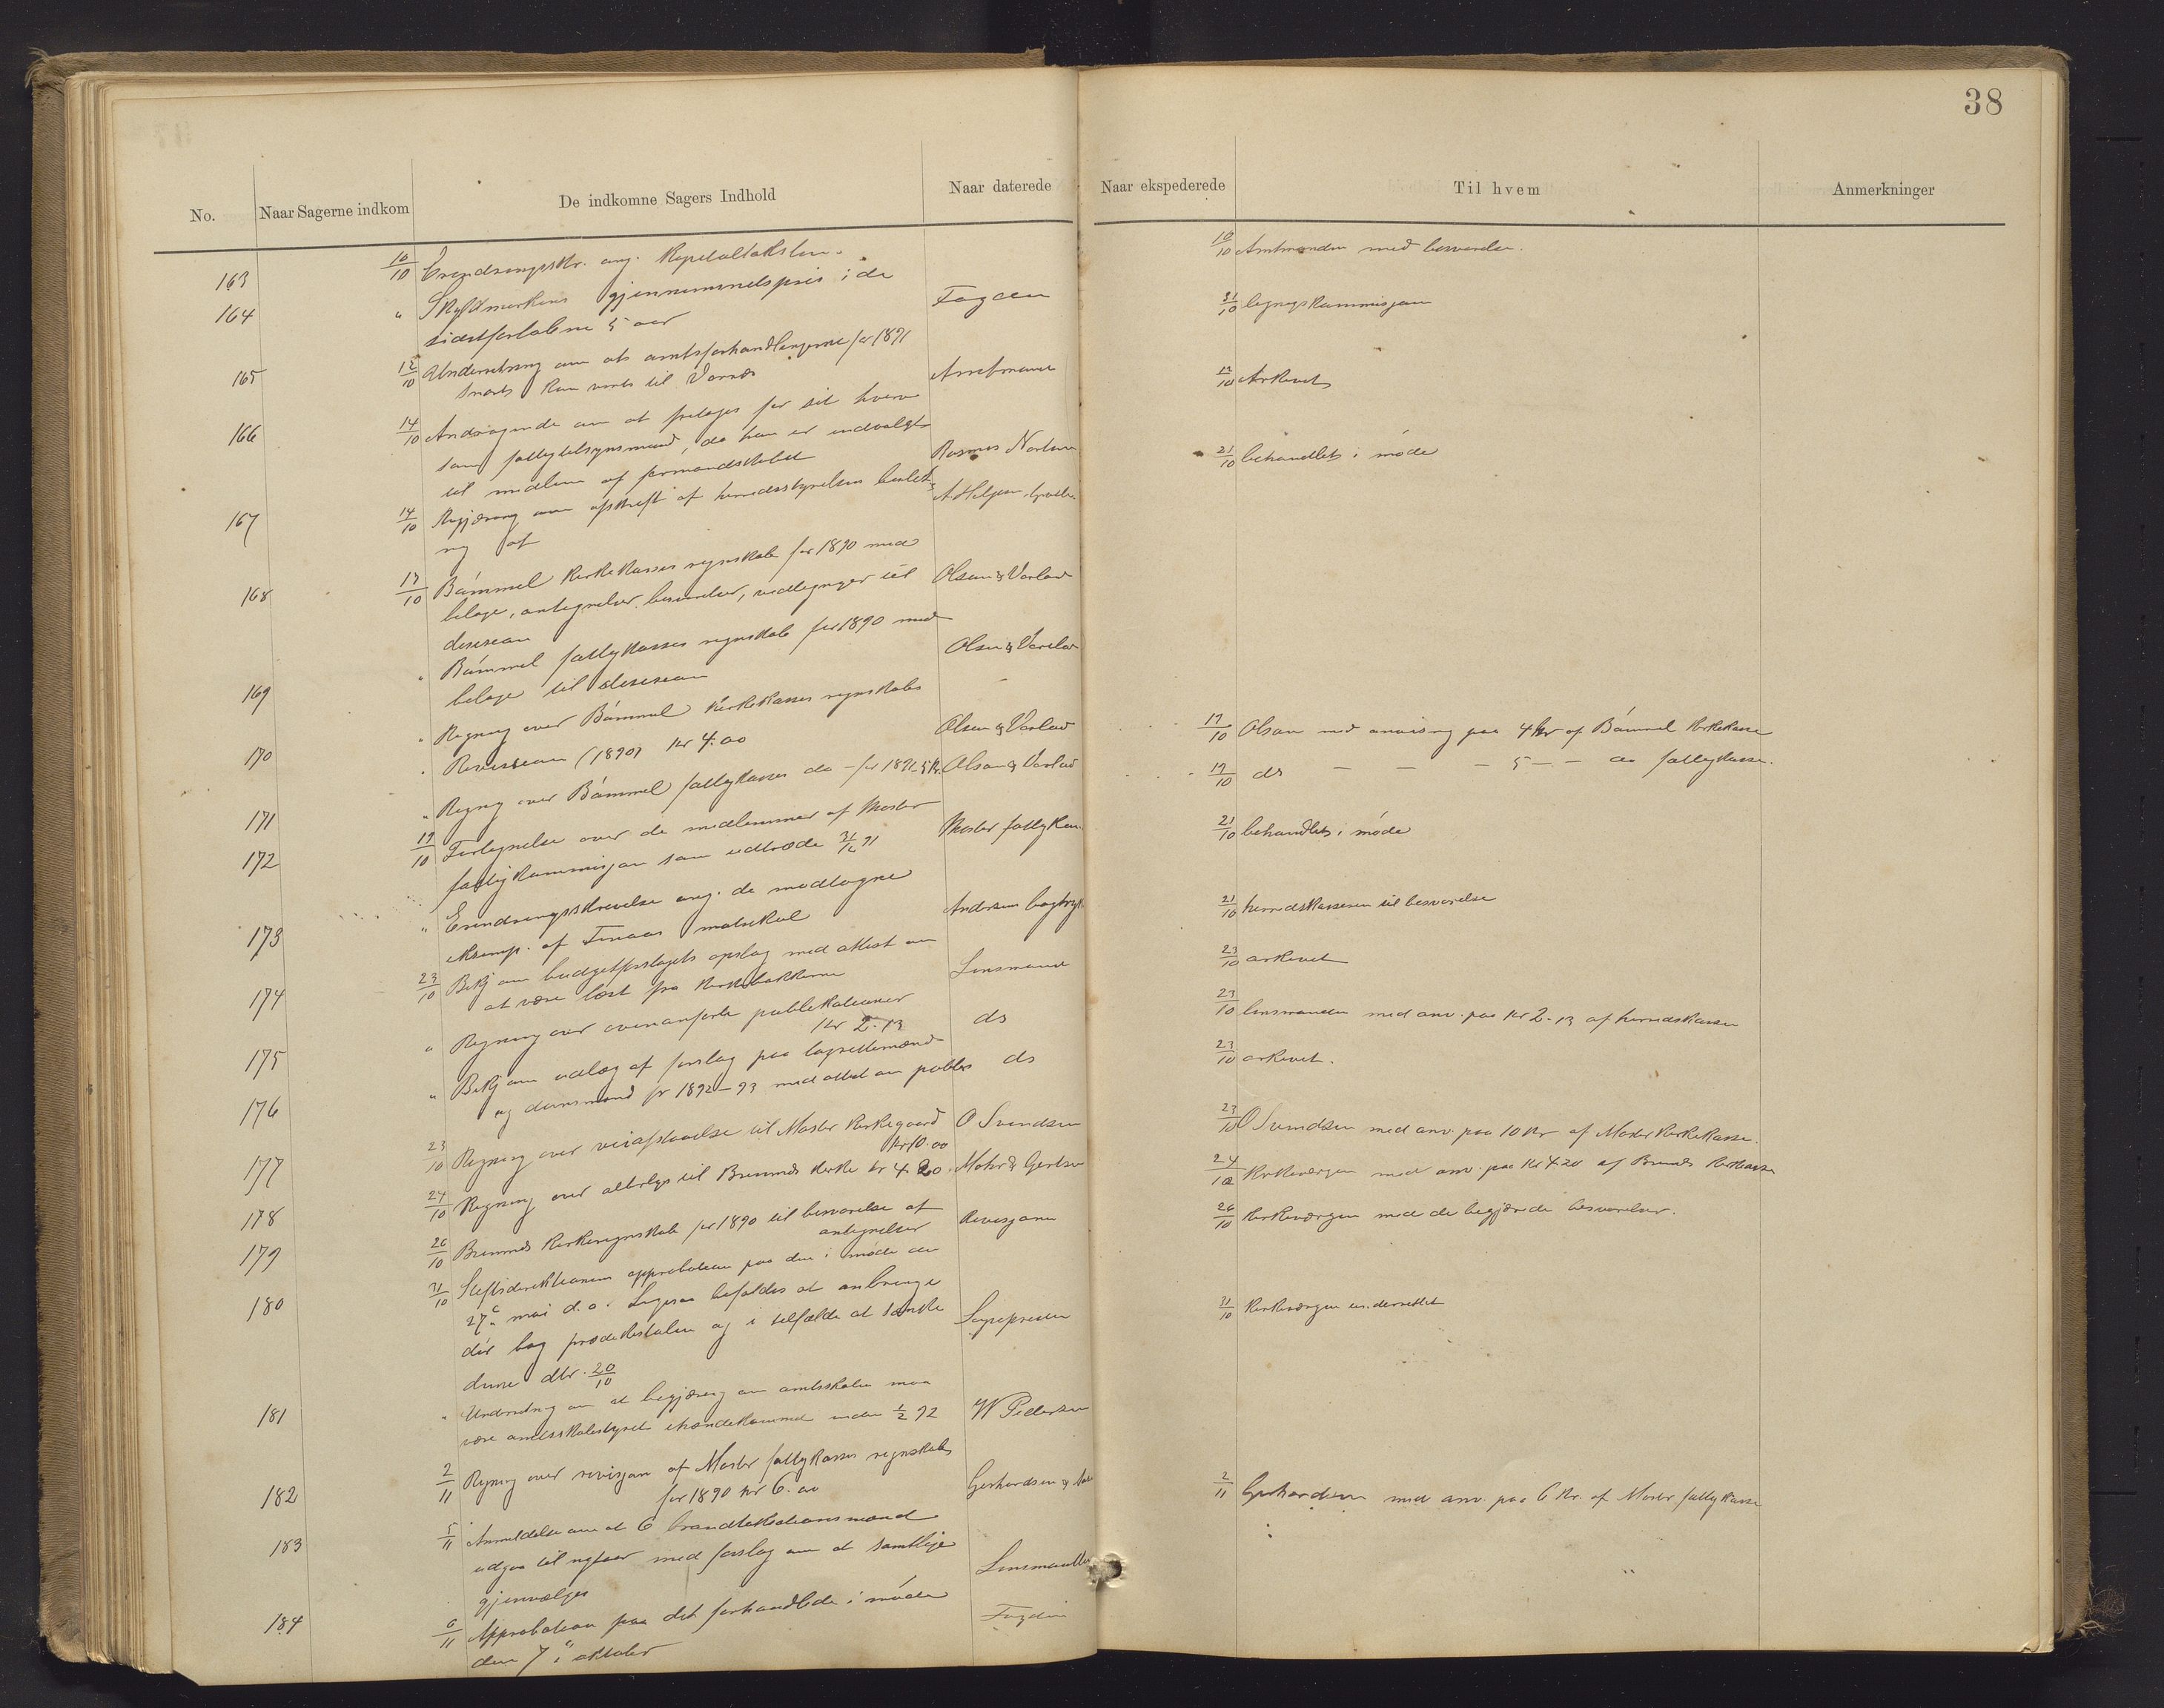 38
No.
Naar Sagerne indkom
De indkomne Sagers Indhold
Naar daterede
Naar ekspederede
Til hvem
Anmerkninger
163 10/10 Erindringsskr. ang. Kapitaltaksten.
10/10 Amtmanden med besvarelse.
164 " Skyldmarkens gjennemsnitspris i de
sidstforløbne 5 aar
Fogden
31/10 ligningskommisjonen
165 12/10 Underretning om at amtsforhandlingerne for 1891
snart kan ventes til
Amtmanden
Arkivet
166 14/10 Andragende om at fritages for sit hverv
som fattigtilsynsmand, da han er indvalgt
til medlem af formandskabet
Rasmus
21/10 behandlet i møde
167 14/10 Begjæring om afskrift af herredsstyrelsens beslut-
ning af
168 17/10 Bømmel kirkekasses regnskab for 1890 med
bilage, antegnelser, besvarelser, vedtegninger til
desision
Olsen & Vorland
169 " Bømmel fattigkasses regnskab for 1890 med
bilage til desision
Olsen & Vorland
170 " Regning over Bømmel kirkekasses regnskabs
Revision (1890) Kr 4.00
Olsen & Vorland
17/10 Olsen med anvisning paa 4 Kr af Bømmel kirkekasse
171 " Regning over Bømmel fattigkasses do - for 1891 5 Kr.
Olsen & Vorland
17/10 do — — — 5 — — do fattigkasse.
172 19/10 Fortegnelse over de medlemmer af Moster
fattigkommisjon som udtræde 31/12 91
Moster fattigkom.
21/10 behandlet i møde
173 " Erindringsskrivelse ang. de modtagne
eksempl. af Finaas matrikul
Andersen bogtryk.
21/10 herredskassereren til besvarelse
174 23/10 Bekj om budgetforslagets opslag med attest om
at være læst fra kirkebakkerne
Lensmand
23/10 arkivet
175 " Regning over ovenanførte publikationer
Kr 2.13
do
23/10 lensmanden med anv. paa Kr 2.13 af herredskassen
176 " Bekj om udlæg af forslag paa lagrettemænd
og domsmænd for 1892-93 med attest om publs
do
23/10 arkivet.
177 23/10 Regning over til Moster kirkegaard
Kr 10.00
O Svendsen
23/10 O Svendsen med anv. paa 10 Kr af Moster kirkekasse.
178 24/10 Regning over alterlys til Bremnes kirke kr 4.20
24/10 Kirkeværgen med anv. paa Kr 4.20 af Bremnes kirkekasse
179 26/10 Bremnes kirkeregnskab for 1890 til besvarelse af
antegnelser
Revisjonen
26/10 Kirkeværgen med de begjærede besvarelser.
180 31/10 Stiftsdirektionens approbation paa den i møde den
27de mai d.a. befaldes at anbringe
dør bag prædikestolen og i tilfælde at sænke
denne dtr. 20/10
Sogepresten
31/10 Kirkeværgen underrettet
181 " Underretning om at begjæring om amtsskolen maa
være amtsskolestyret ihændekommet inden 1/2 92
W Pedersen
182 2/11 Regning over revisjon af Moster fattigkasses regnskab
for 1890 Kr 6.00
Gerhardsen &
2/11 Gerhardsen med anv. paa 6 Kr. af Moster fattigkasse
183 5/11 Anmeldelse om at 6 brandtakstionsmænd
udgaa til nytaar med forslag om at samtlige
gjenvælges
184 6/11 Approbation paa det forhandlede i møde
den 7de oktober
Fogden